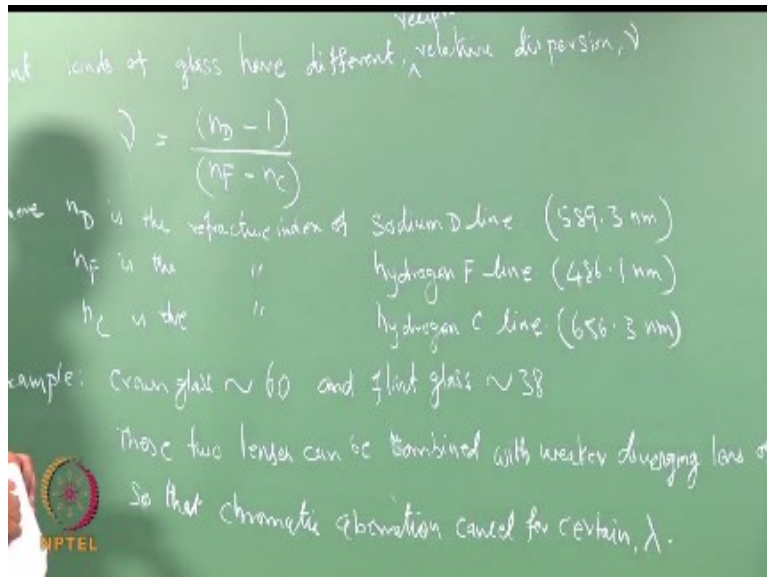 kinds of glass have different ^ relative dispersion, ν
ν = (n_D - 1) / (n_F - n_C)
n_D is the refractive index of Sodium D line (589.3 nm)
n_F is the " hydrogen F line (486.1 nm)
n_C is the " hydrogen C line (656.3 nm)
ample: Crown glass ~ 60 and flint glass ~ 38
These two lenses can be combined with weaker diverging lens
So that chromatic aberration cancel for certain, λ.
NPTEL